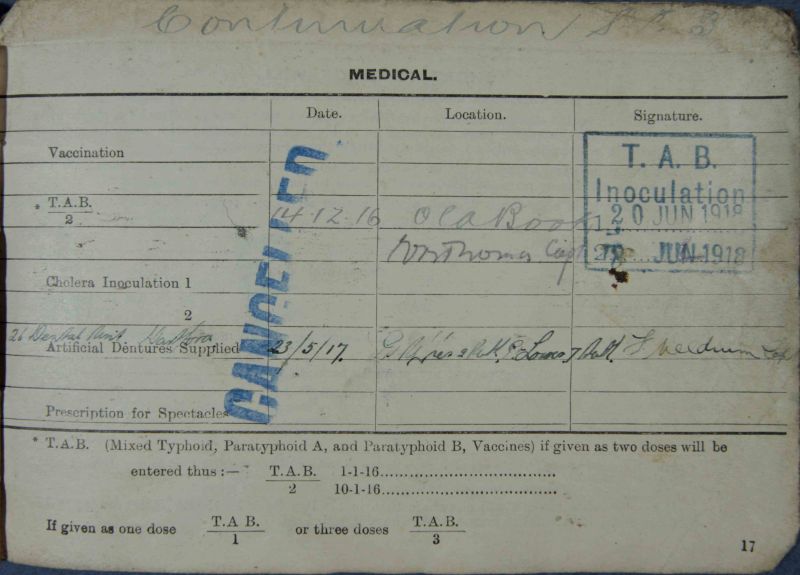 Continuation
MEDICAL.
Date. Location. Signature.
Vaccination
T. A. B.
Inoculation
* T.A.B. 14.12.16 Old Book 20 JUN 1918
2
Capt 2 JUN 1918
CANCELLED
Cholera Inoculation 1
2
26 Dental Unit
Artificial Dentures Supplied 23/5/17.
Prescription for Spectacles
* T.A.B. (Mixed Typhoid, Paratyphoid A, and Paratyphoid B, Vaccines) if given as two doses will be
entered thus :— T.A.B. 1-1-16...................................
2 10-1-16...................................
If given as one dose T.A B. or three doses T.A.B.
1 3
17